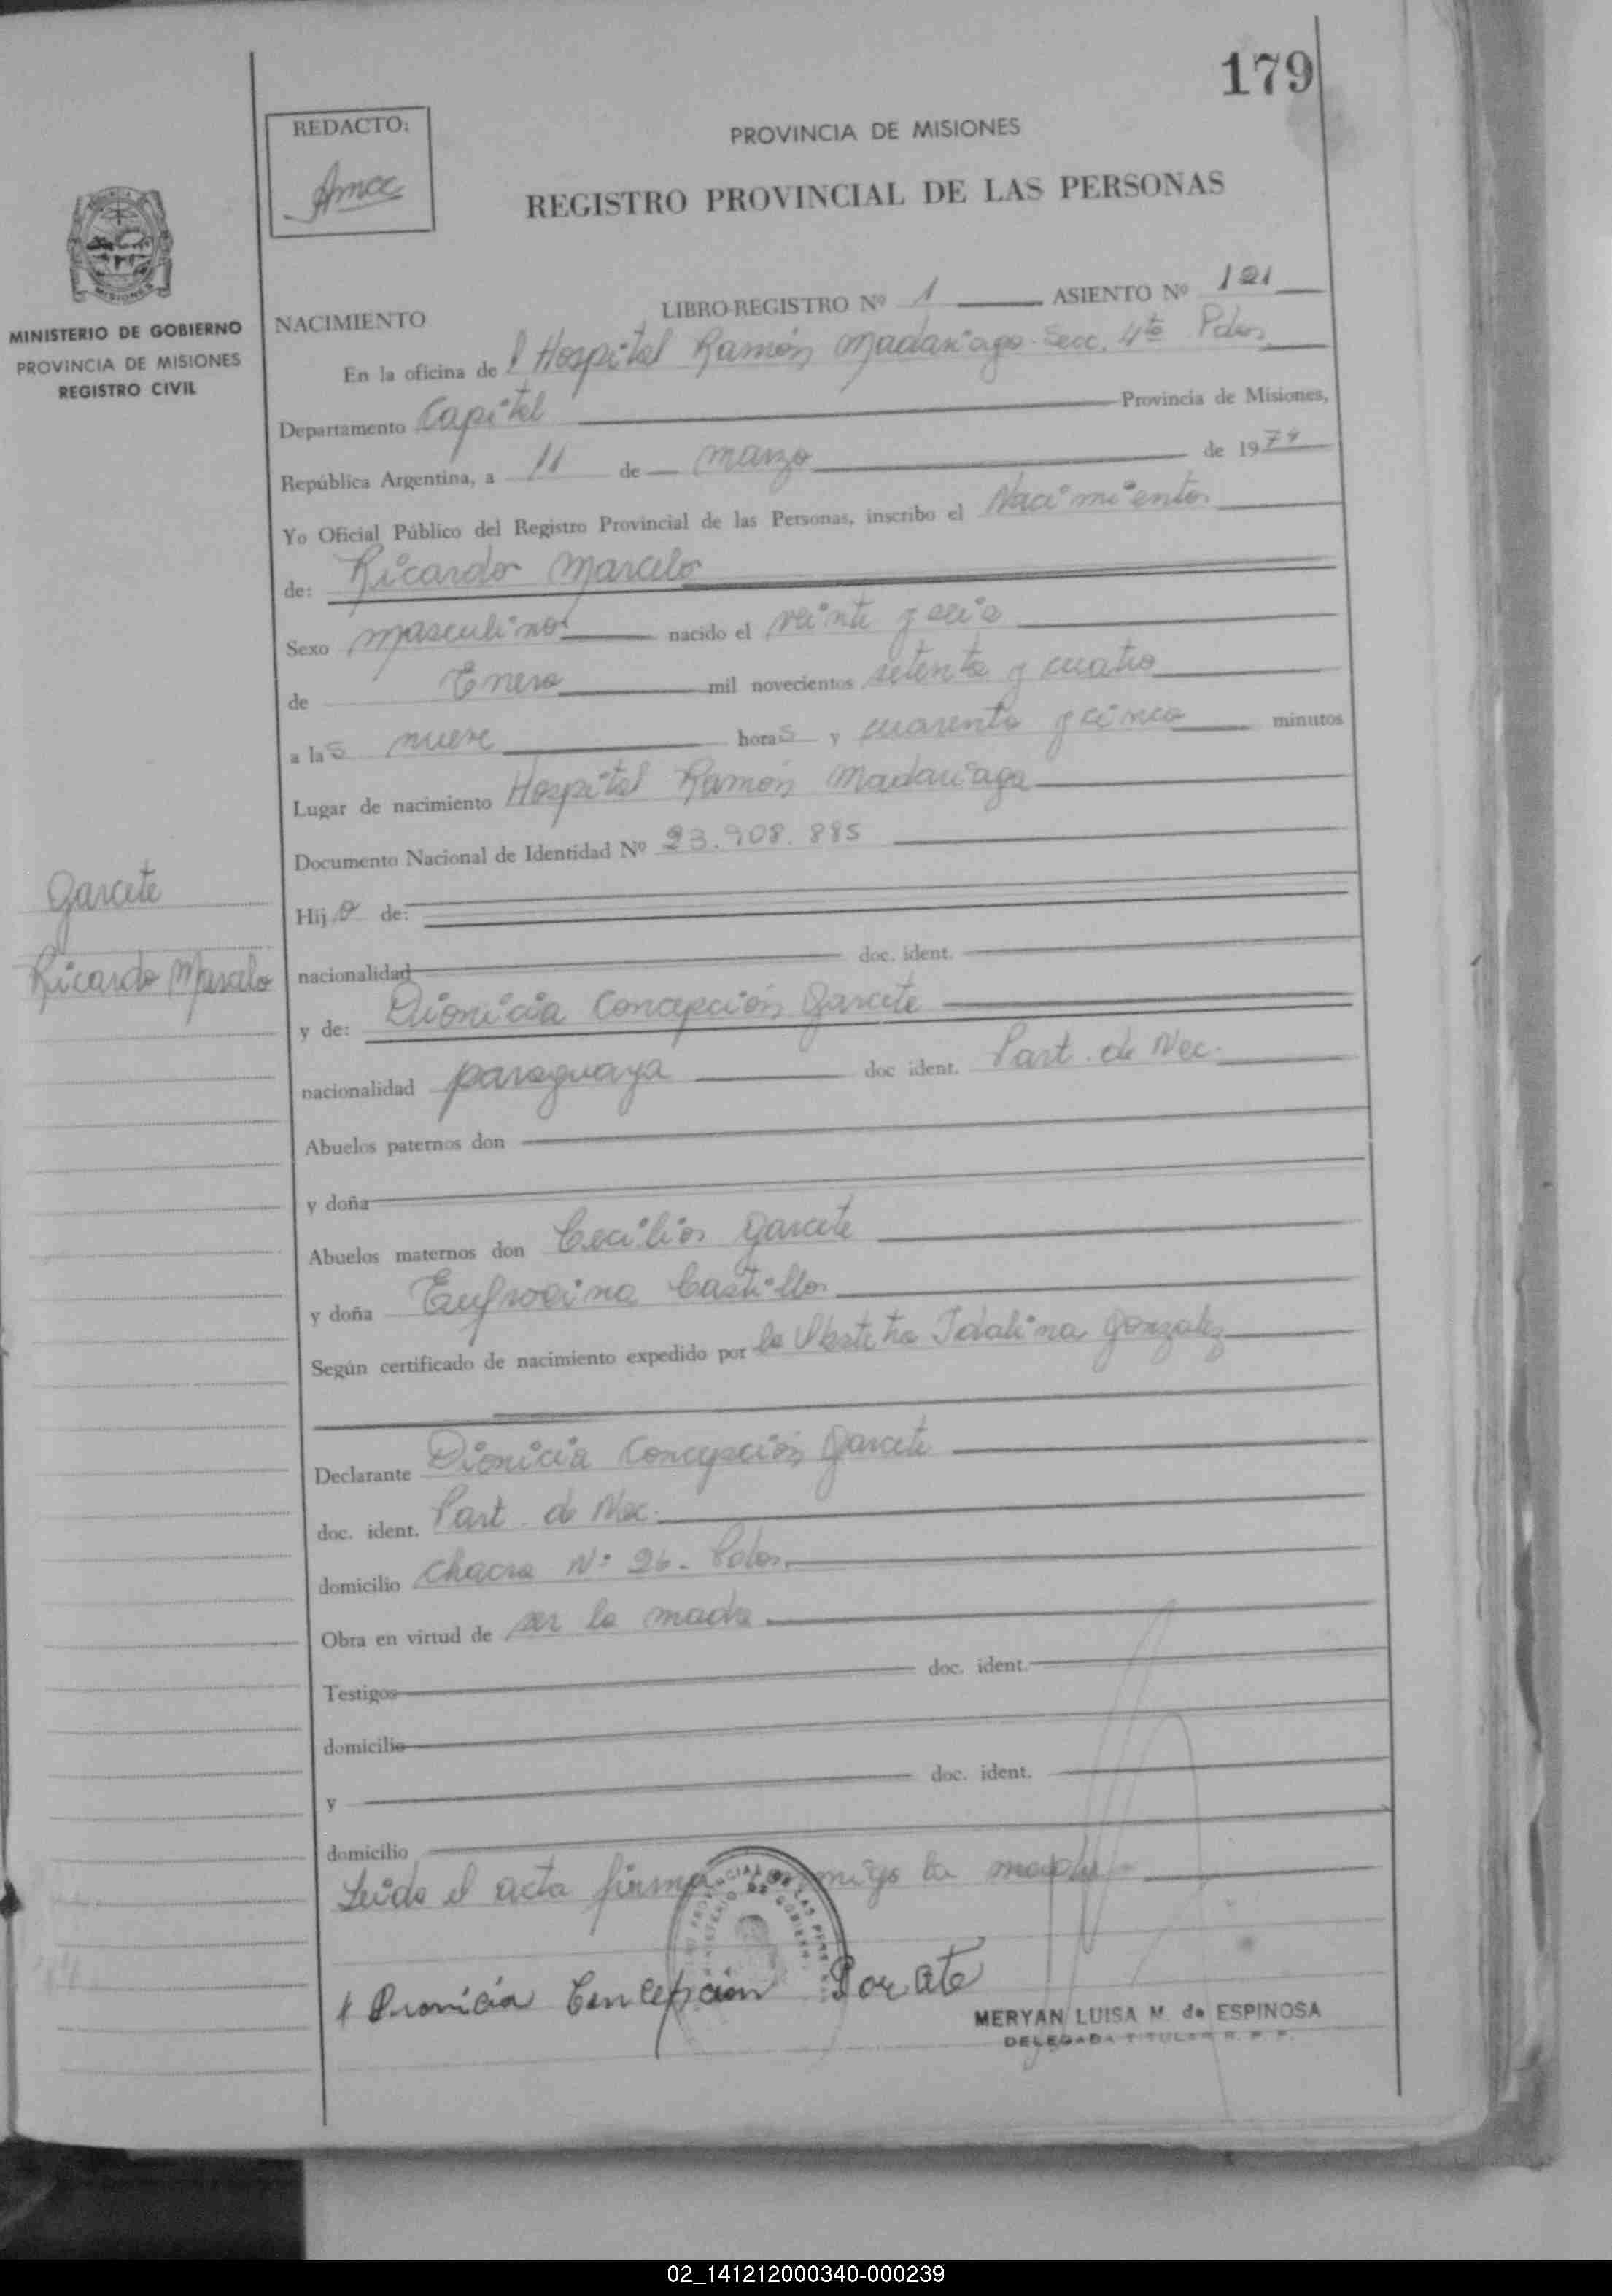 179
REDACTO:
PROVINCIA DE MISIONES
REGISTRO PROVINCIAL DE LAS PERSONAS
MISIONES
MINISTERIO DE GOBIERNO
PROVINCIA DE MISIONES
REGISTRO CIVIL
NACIMIENTO LIBRO-REGISTRO Nº 1 ASIENTO Nº 121
En la oficina de l Hospital Ramón Madariaga - Secc. 4ta Pdas.
Departamento Capital Provincia de Misiones,
República Argentina, a 11 de marzo de 1974
Yo Oficial Público del Registro Provincial de las Personas, inscribo el Nacimiento
de: Ricardo Marcelo
Sexo masculino nacido el veinte y seis
de Enero mil novecientos setenta y cuatro
a las nueve horas y cuarenta y cinco minutos
Lugar de nacimiento Hospital Ramón Madariaga
Documento Nacional de Identidad Nº 23.908.885
Garcete
Hijo de:
Ricardo Marcelo
nacionalidad doc. ident.
y de: Dionicia Concepción Garcete
nacionalidad paraguaya doc ident. Part. de Nac.
Abuelos paternos don
y doña
Abuelos maternos don Cecilio Garcete
y doña Eufrocina Castillo
Según certificado de nacimiento expedido por la Idalina Gonzalez
Declarante Dionicia Concepción Garcete
doc. ident. Part. de Nac.
domicilio Chacra Nº 26 - Pdas.
Obra en virtud de ser la madre
Testigos doc. ident.
domicilio
y doc. ident.
domicilio
Leida el acta firma conmigo la madre
Dionicia Concepcion Garcete
MERYAN LUISA M. de ESPINOSA
DELEGADA TITULAR R. P. P.
02_141212000340-000239